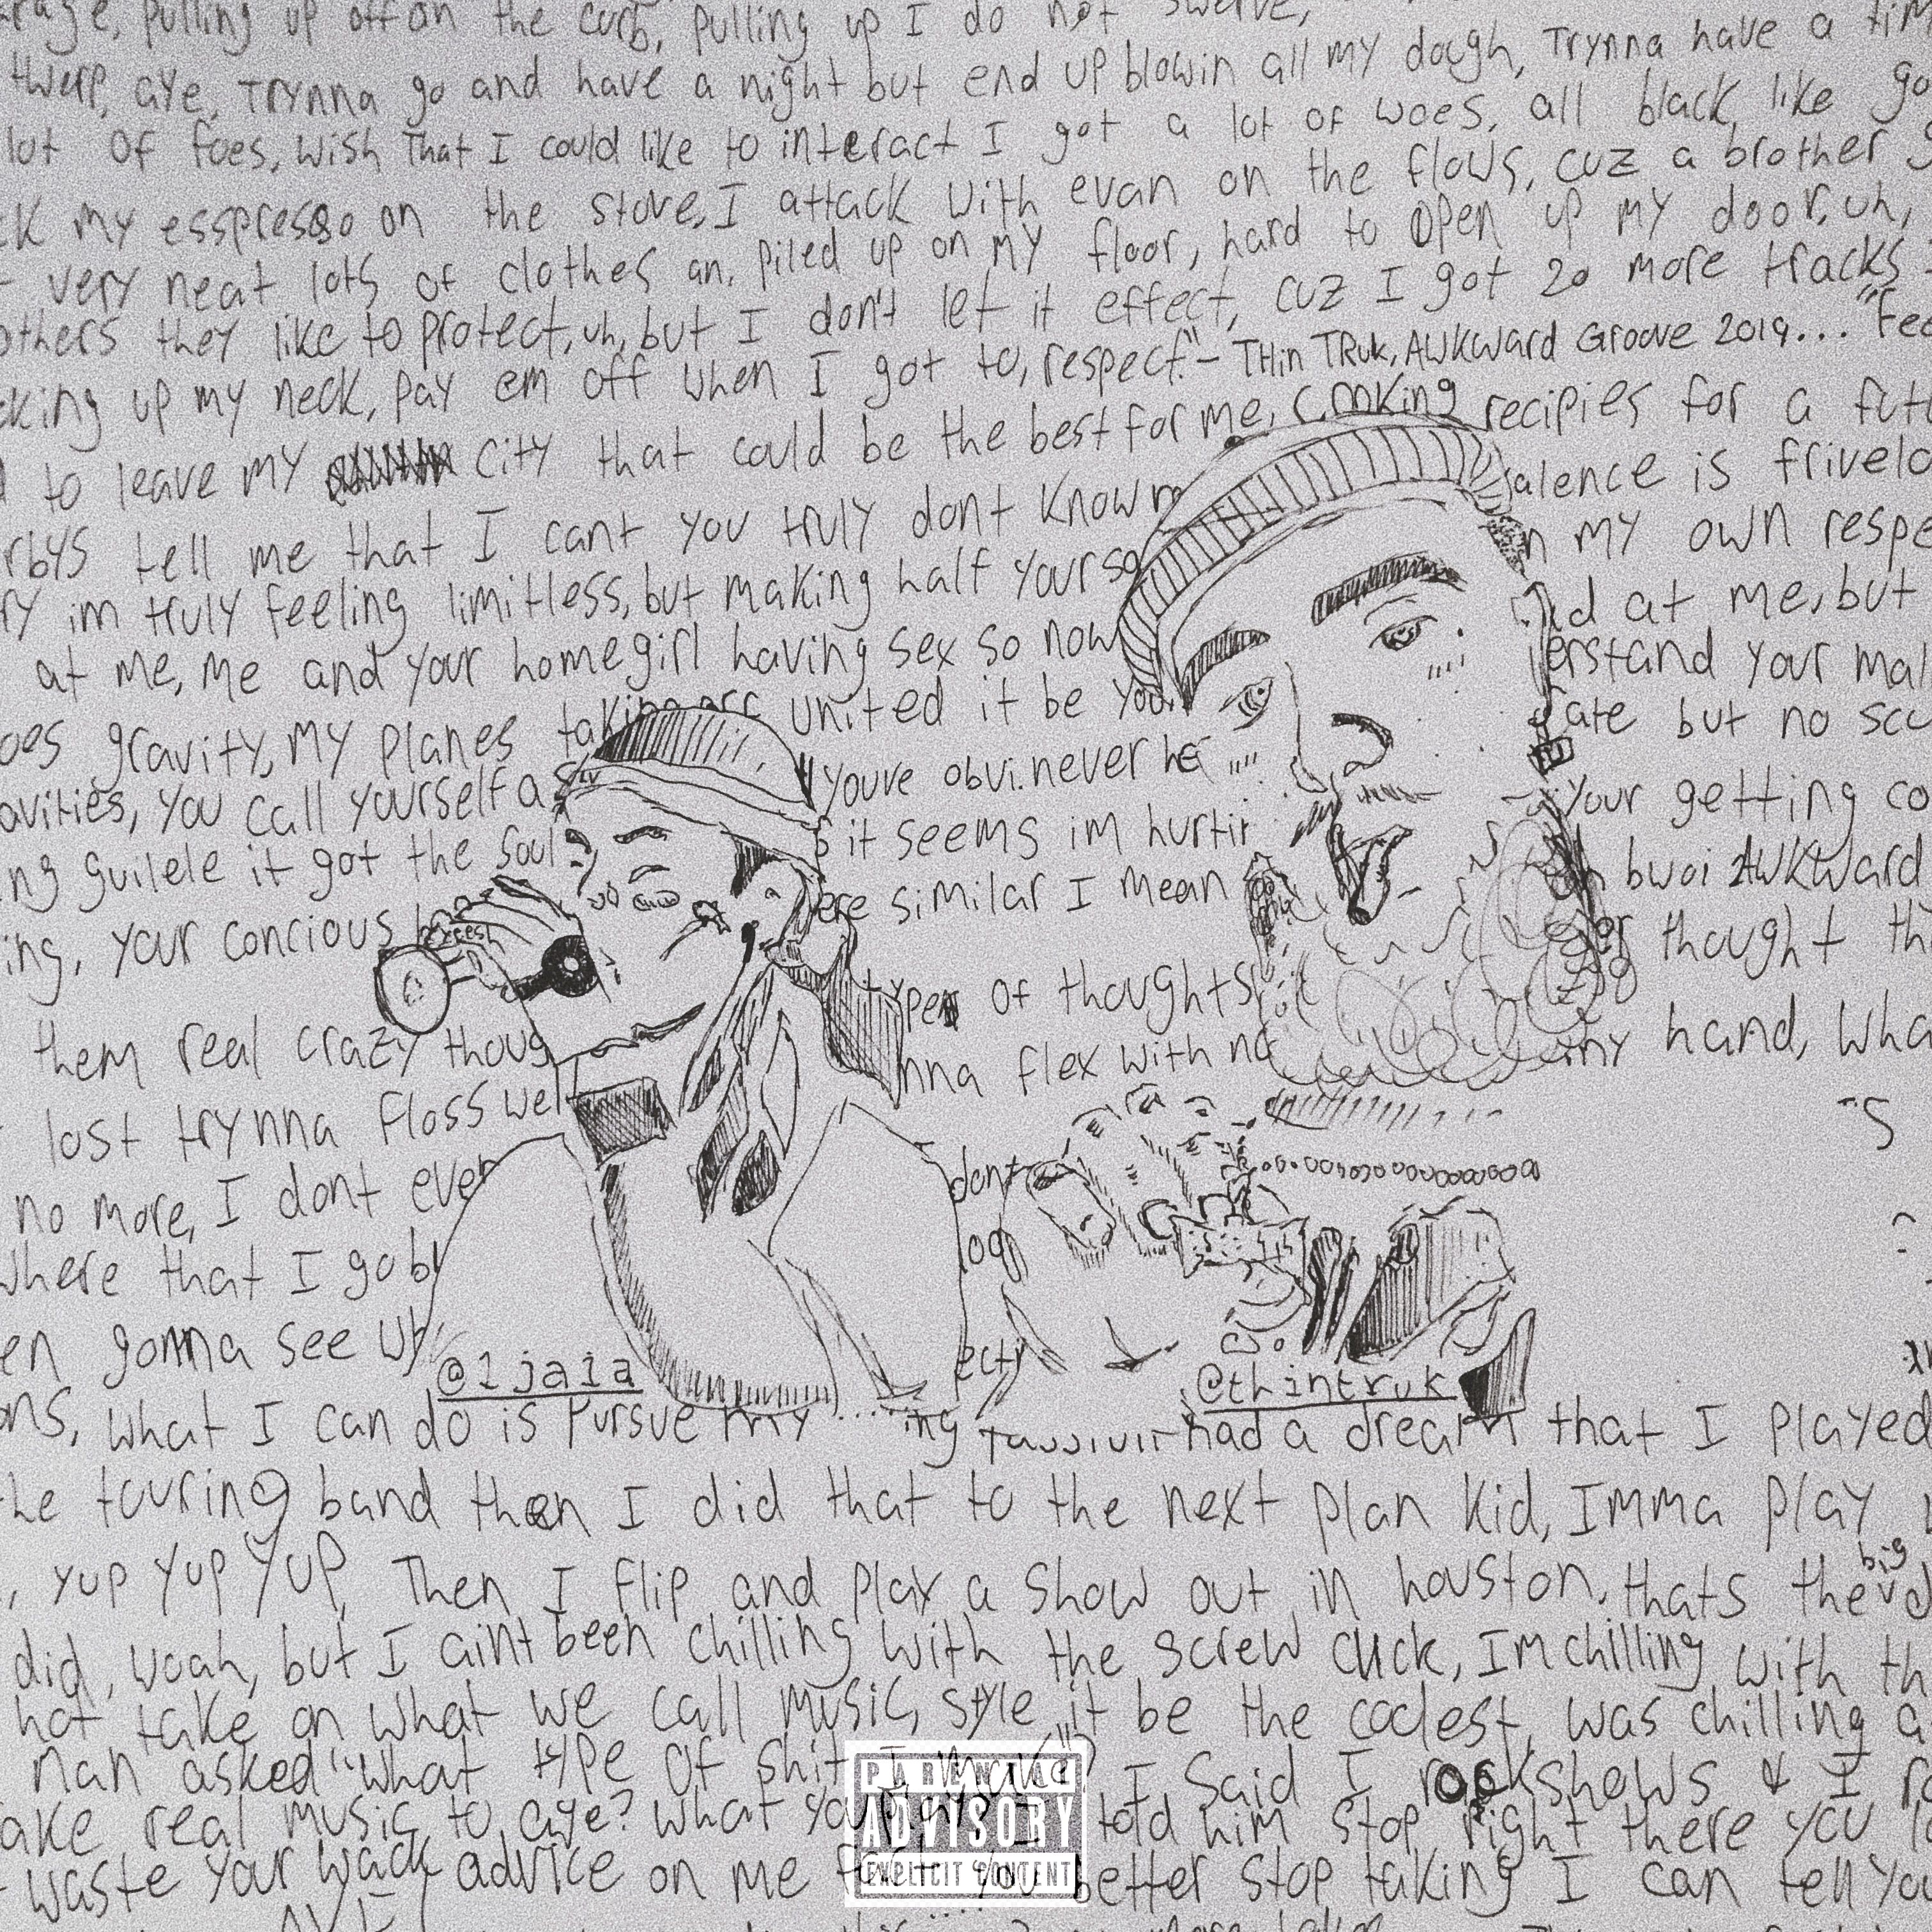 pulling up off on the curb, pulling up I do not swerve,
twerp, aye, Trynna go and have a night but end up blowin all my dough, Trynna have a
lot of foes, wish That I could like to interact I got a lot of woes, all black, like
my esspresso on the stove, I attack with evan on the flows, cuz a brother
very neat lots of clothes an. piled up on my floor, hard to open up my door, uh,
others they like to protect, uh, but I don't let it effect, cuz I got 20 more tracks
up my neck, pay em off when I got to, respect." - THin TRuk, AWKward Groove 2019... "Fee
to leave my city that could be the best for me, cooking recipies for a
tell me that I cant you truly dont know alence is
im truly feeling limitless, but making half your so my own respe
at me, me and your homegirl having sex so now at me, but
gravity, my planes taking off united it be you. erstand your
avities, you call yourself a youve obvi. never he ate but no
guilele it got the soul it seems im hurtin your getting co
ing, your concious similar I mean bwoi AWKward
them real crazy thoug of thoughts thought
lost trynna floss well nna flex with no my hand, wha
no more, I dont ever dont
where that I go
gonna see
@1jaia
@thintruk
ons, what I can do is pursue my ing had a dream that I played
the touring band then I did that to the next plan kid, Imma play
yup yup yup, Then I flip and play a show out in houston, thats the big
did, woah, but I aint been chilling with the screw click, Im chilling with th
hot take on what we call music, style it be the coolest, was chilling a
man asked "what type of shit I make" I said I rock shows & I
ake real music to aye? what you I told him stop right there you
waste your wack advice on me better stop talking I can tell you
PARENTAL
ADVISORY
EXPLICIT CONTENT